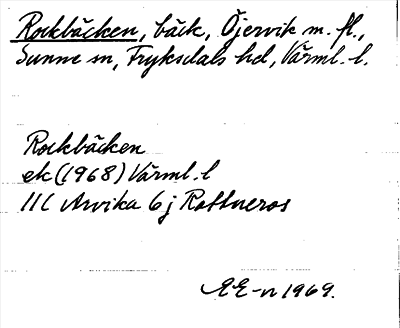 Rockbäcken, bäck, Öjervik m. fl.,
Sunne sn, Fryksdals hd, Värml. l.
Rockbäcken
ek (1968) Värml. l
11C Arvika 6j Rottneros
EE-n 1969.